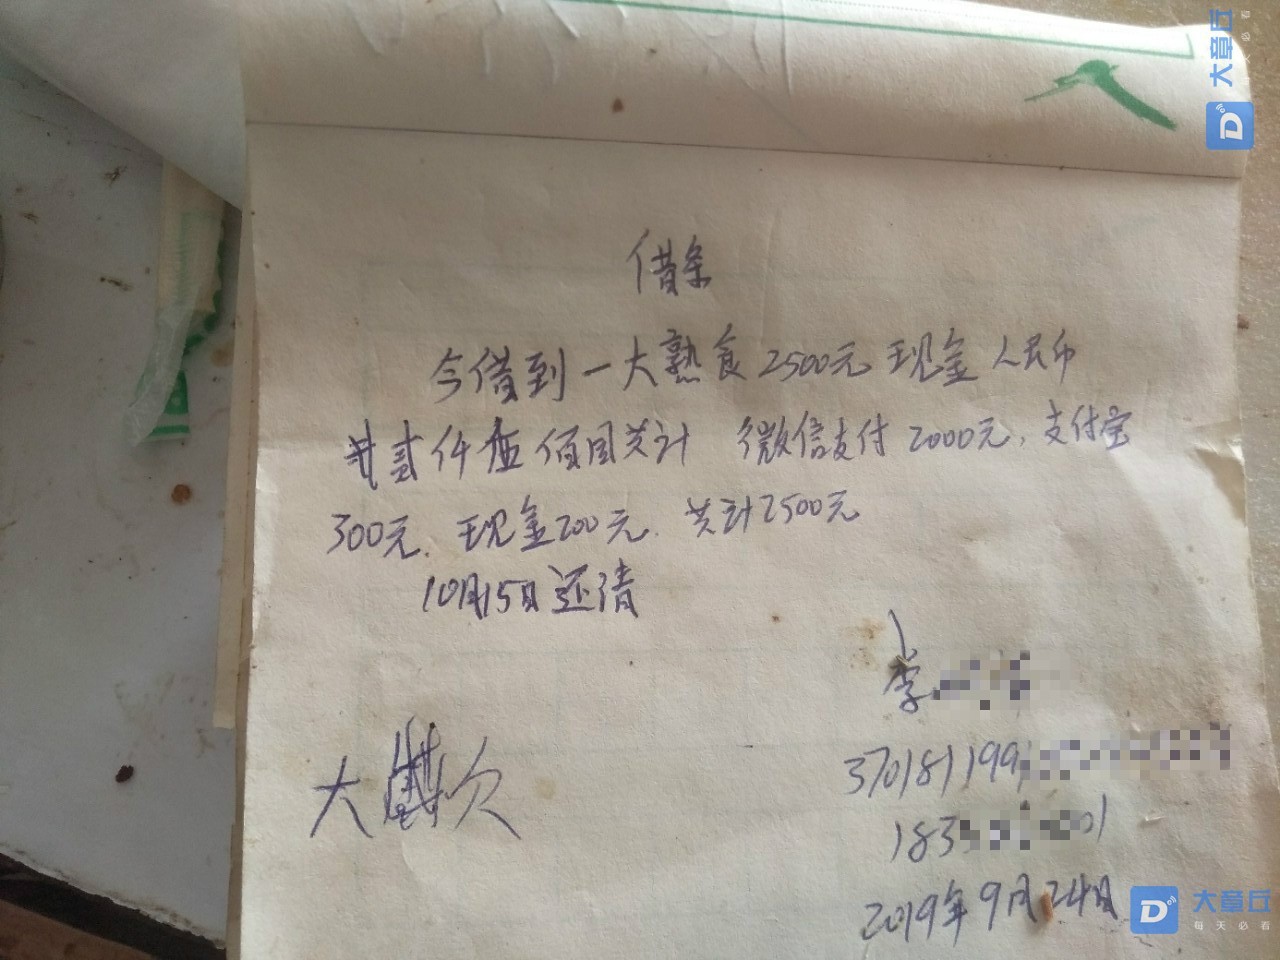 借条
今借到一大熟食2500元现金人民币
贰仟伍佰圆共计 微信支付2000元,支付宝
300元. 现金200元. 共计2500元
10月15日还清
李
370181199
大 欠
183 01
2019年9月24日
大章丘
每天必看
大章丘